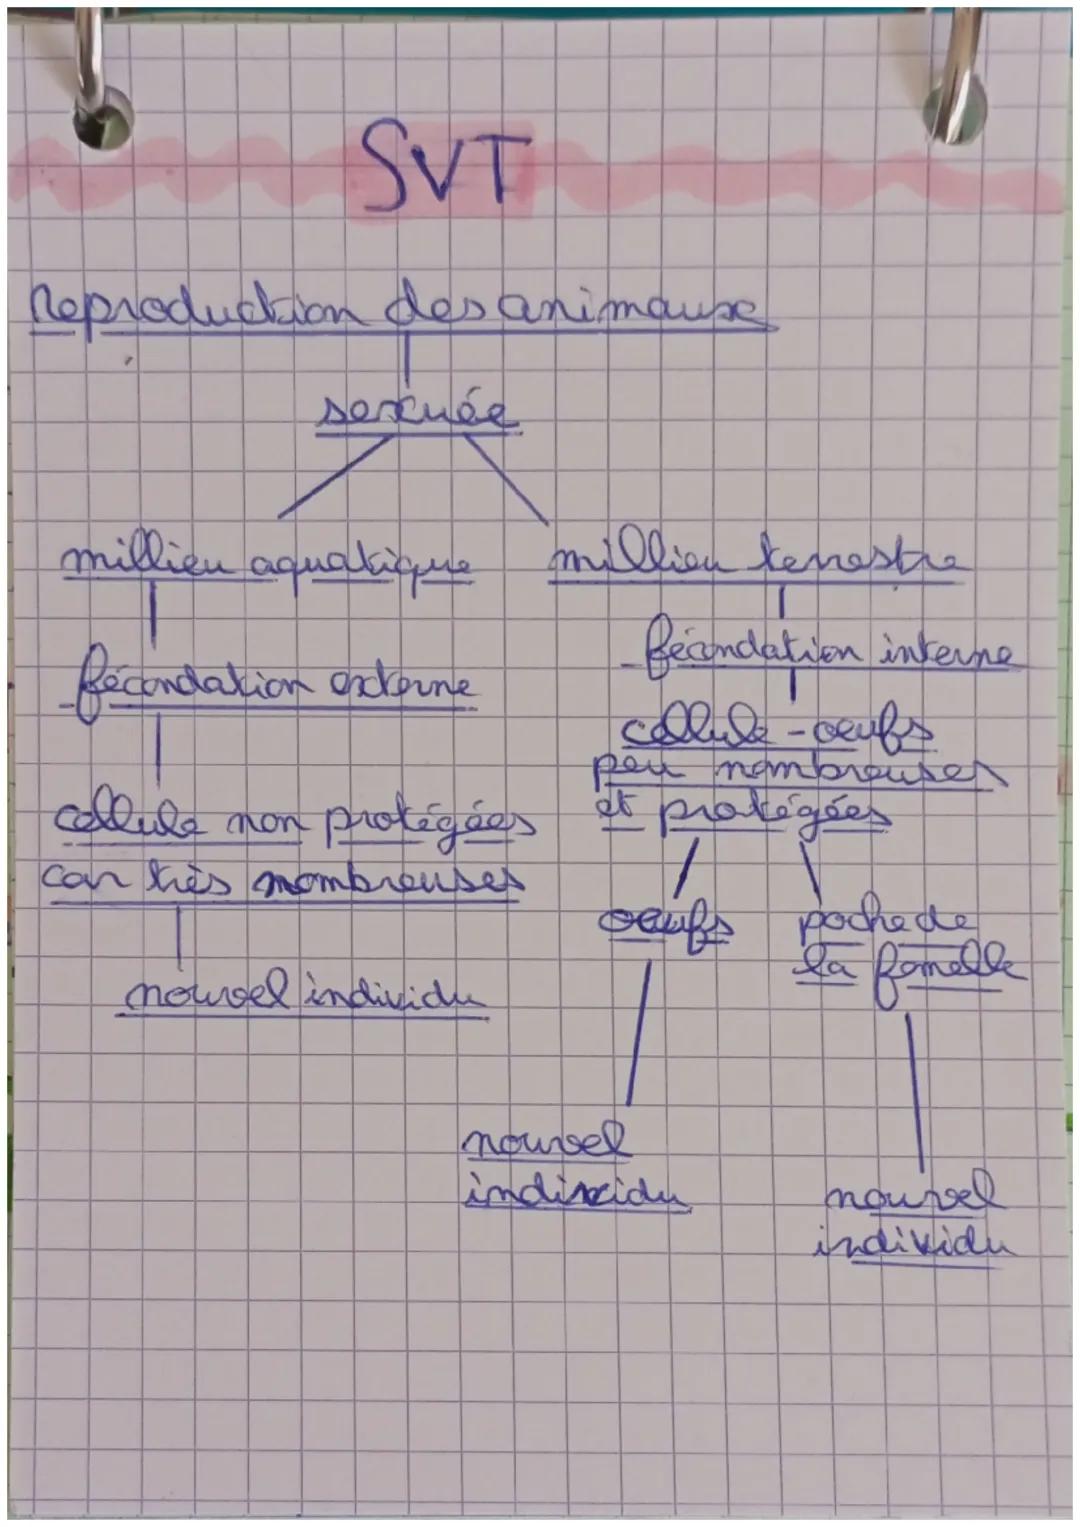 SVT
Reproduction des animaux
sexuée
millieu aquatique
fécondation externe
cellule non protégées
car très nombreuses
nouvel individu
millieu terrestre
fécondation interne
cellule-oeufs
peu nombreuses
et protégées
oeufs
nouvel
individu
poche de
la femelle
nouvel
individu